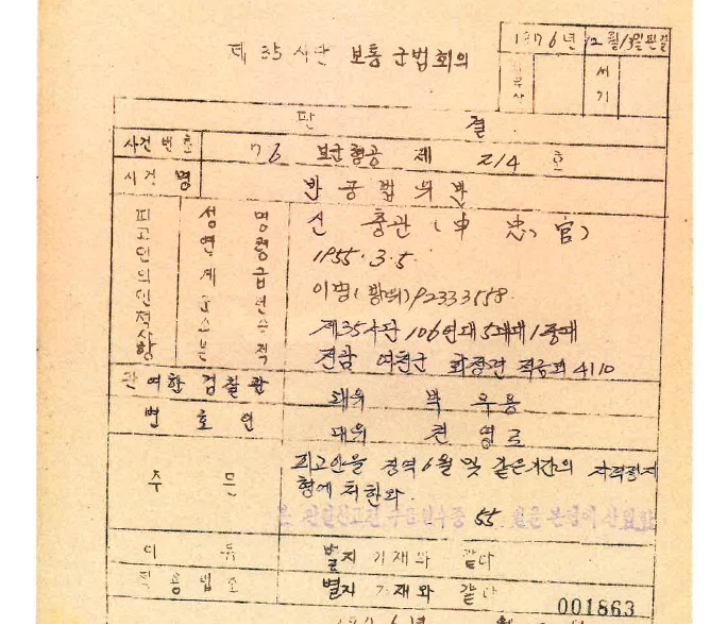 제 35 사단 보통 군법회의
1976년 12월 13일 판결
서기
판 결
사건번호 76 보군형공 제 214 호
사건명 반공법위반
피고인의인적사항
성명 신 충관 (申 忠 官)
연령 1955. 3. 5.
계급 이병 (방위) 92333558
제35사단 106연대 5대대 1중대
전남 여천군 화정면 적금리 4110
관여한 검찰관 대위 박 우용
변호인 대위 전 영
주 문 피고인을 징역 6월 및 같은기간의 자격정지
형에 처한다.
본 판결선고전 구금일수중 55 일을 본형에 산입함
이 유 별지 기재와 같다
적용법조 별지 기재와 같다
001863